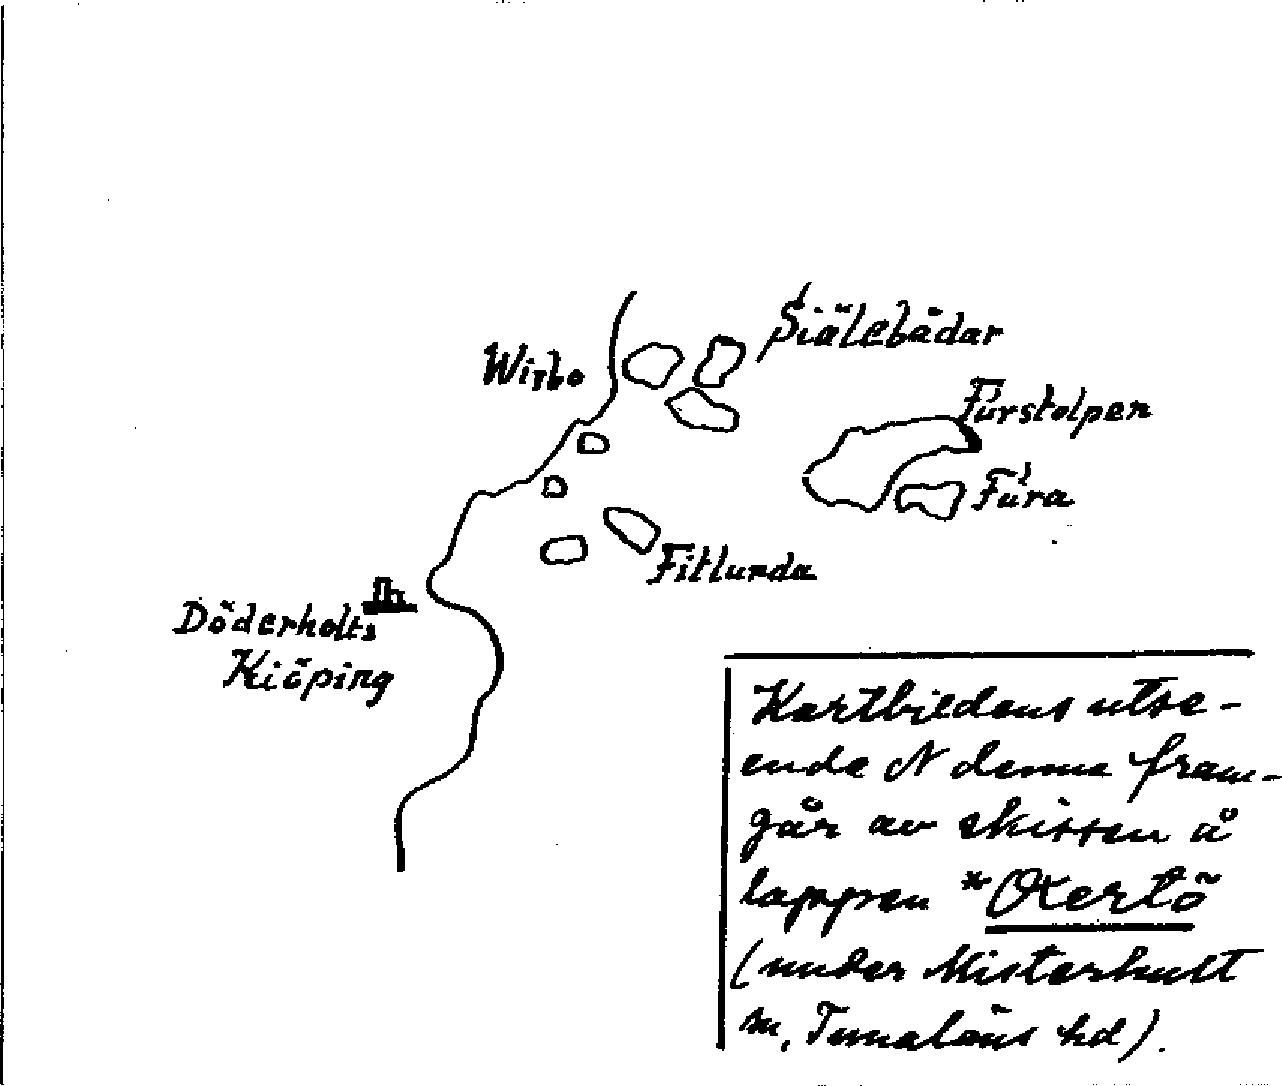 Siälebådar
Wirbo
Furstolpen
Fúra
Fitlunda
Döderholts
Kiöping
Kartbildens utse-
ende N denna fram-
går av skissen å
lappen *Oxertö
(under Misterhult
sn, Tunaläns hd).